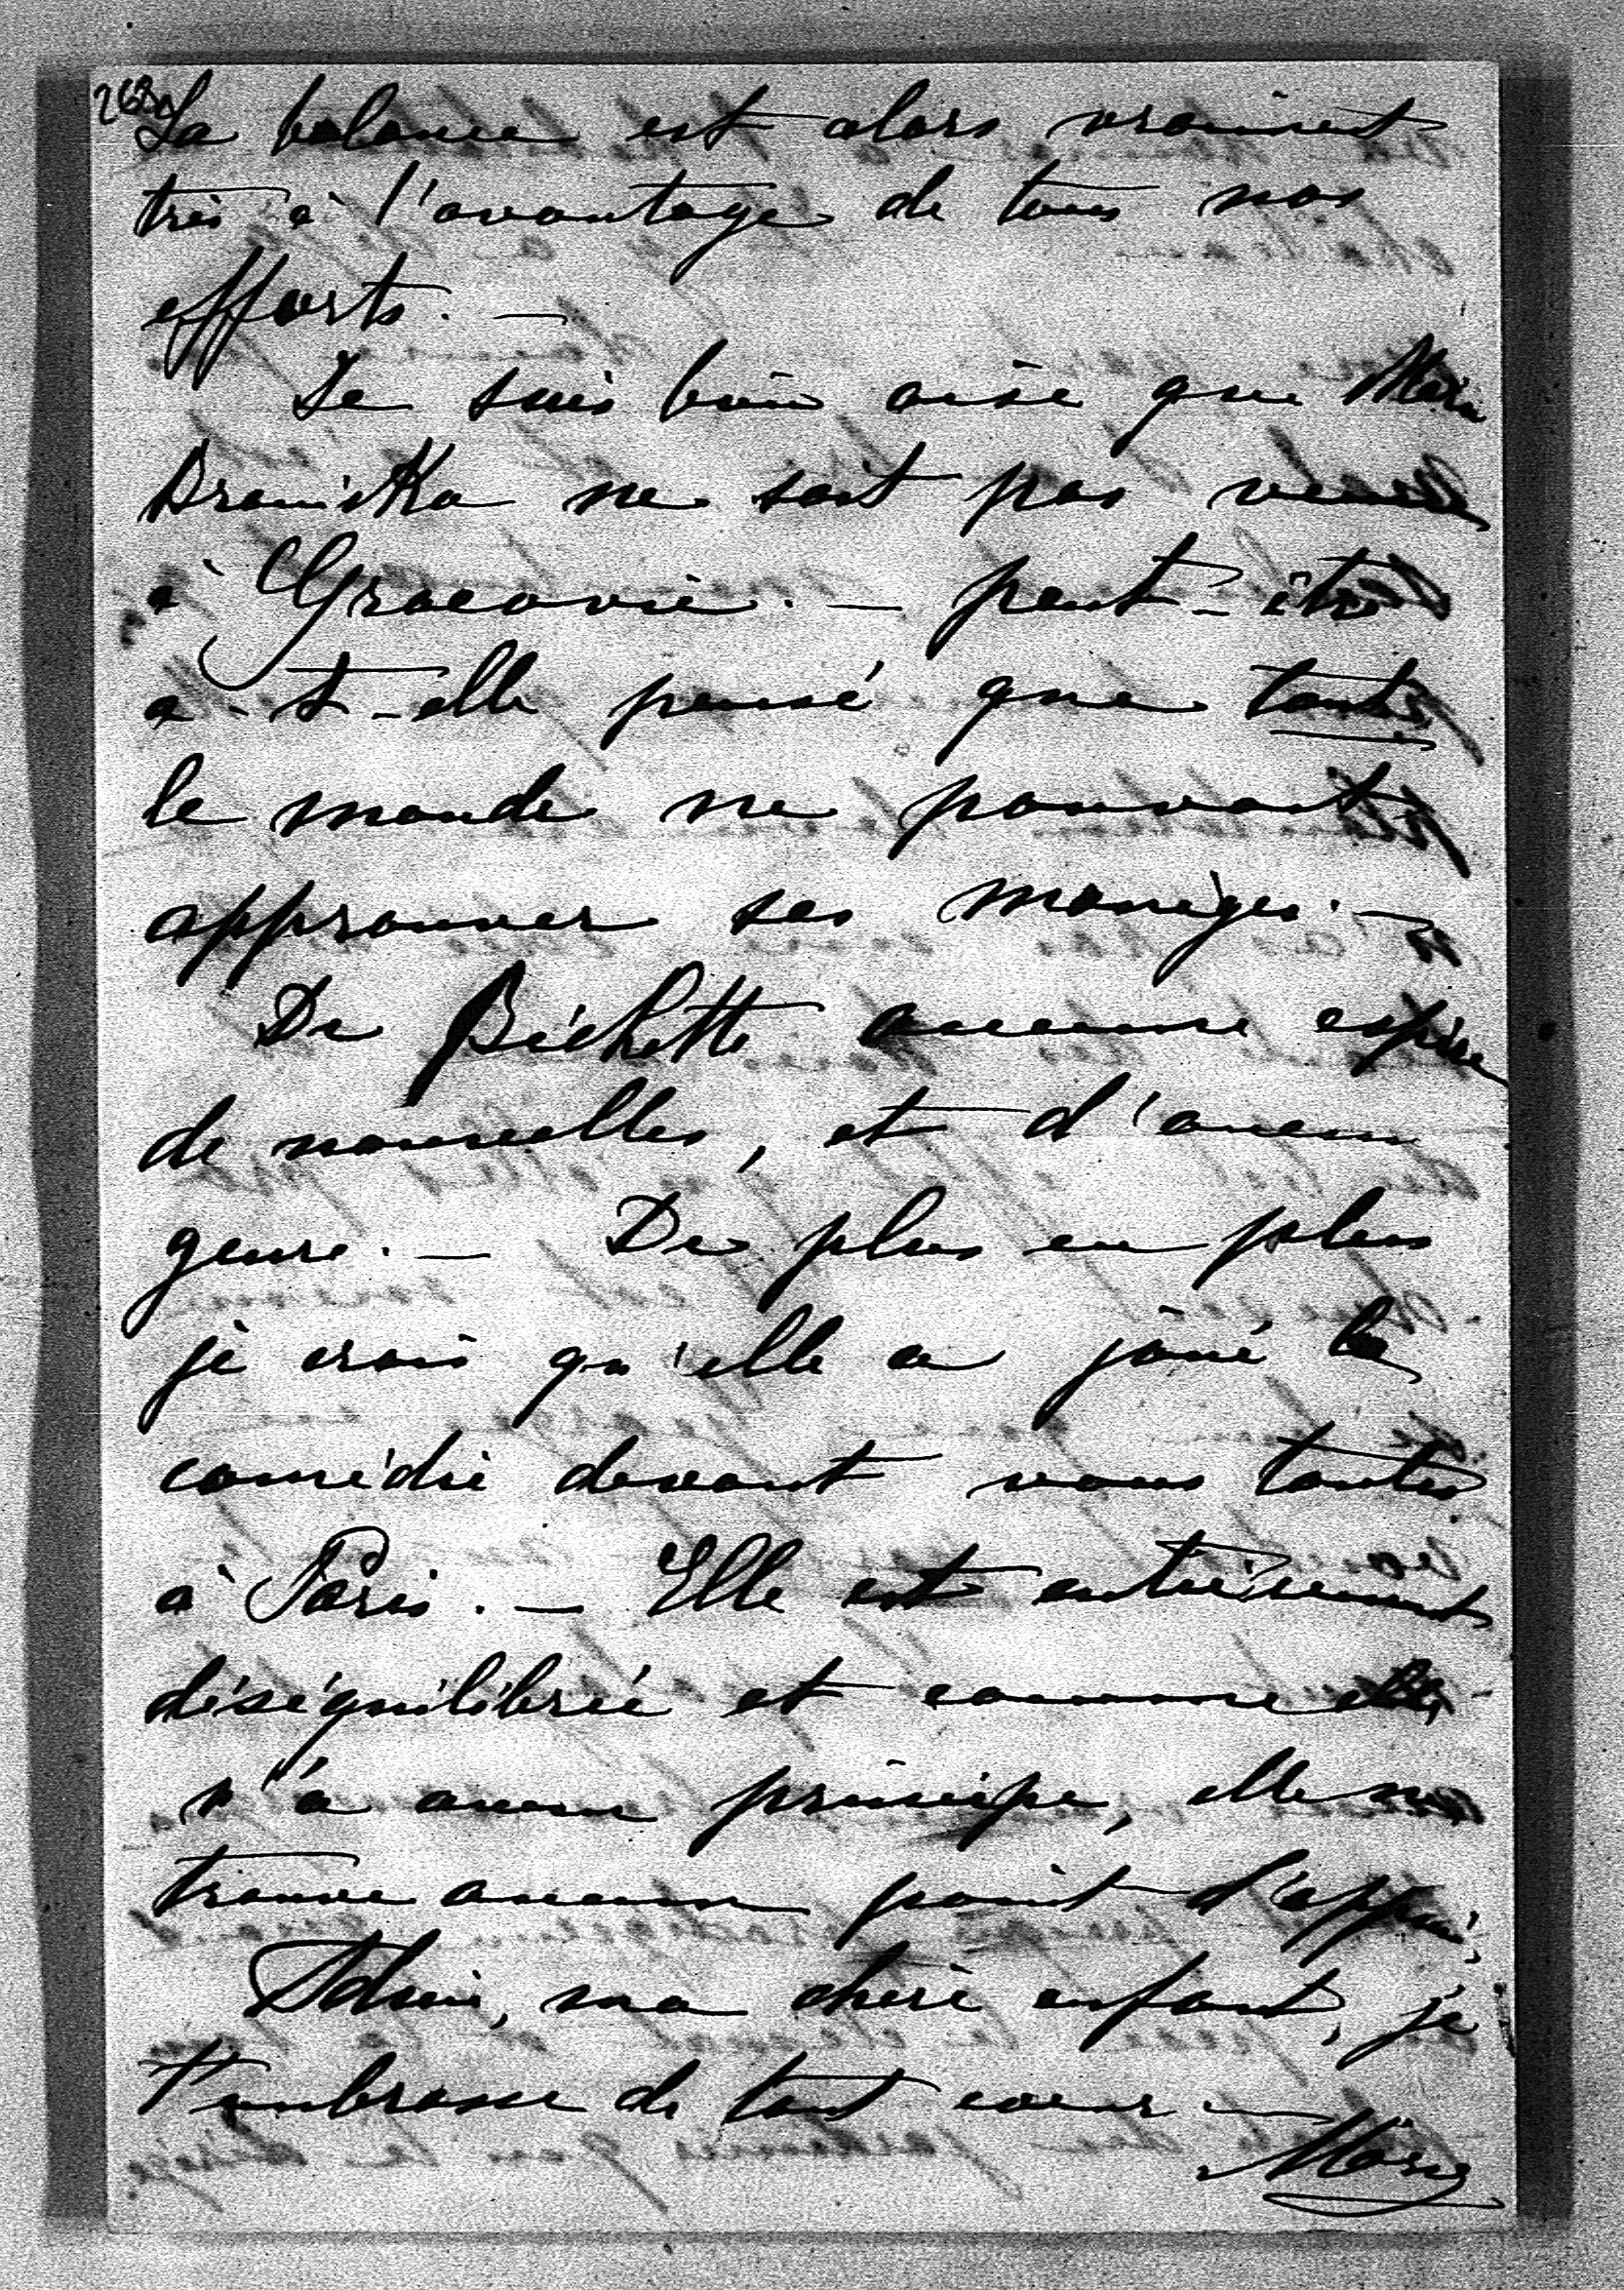 La balance est alors vraiment
très à l'avantage de tous nos
efforts. —
Je suis bien aise que
ne soit pas venue
à Gracovie. — peut-être
a-t-elle pensé que tout
le monde ne pouvait
approuver ses manèges. —
De Bichette aucune espèce
de nouvelles, et d'aucun
genre. — De plus en plus
je crois qu'elle a joué la
comédie devant vous toutes
à Paris. — Elle est entièrement
déséquilibrée et comme elle
n'a aucun principe, elle ne
trouve aucun point d'appui.
Adieu, ma chère enfant, je
t'embrasse de tout cœur —
Marie